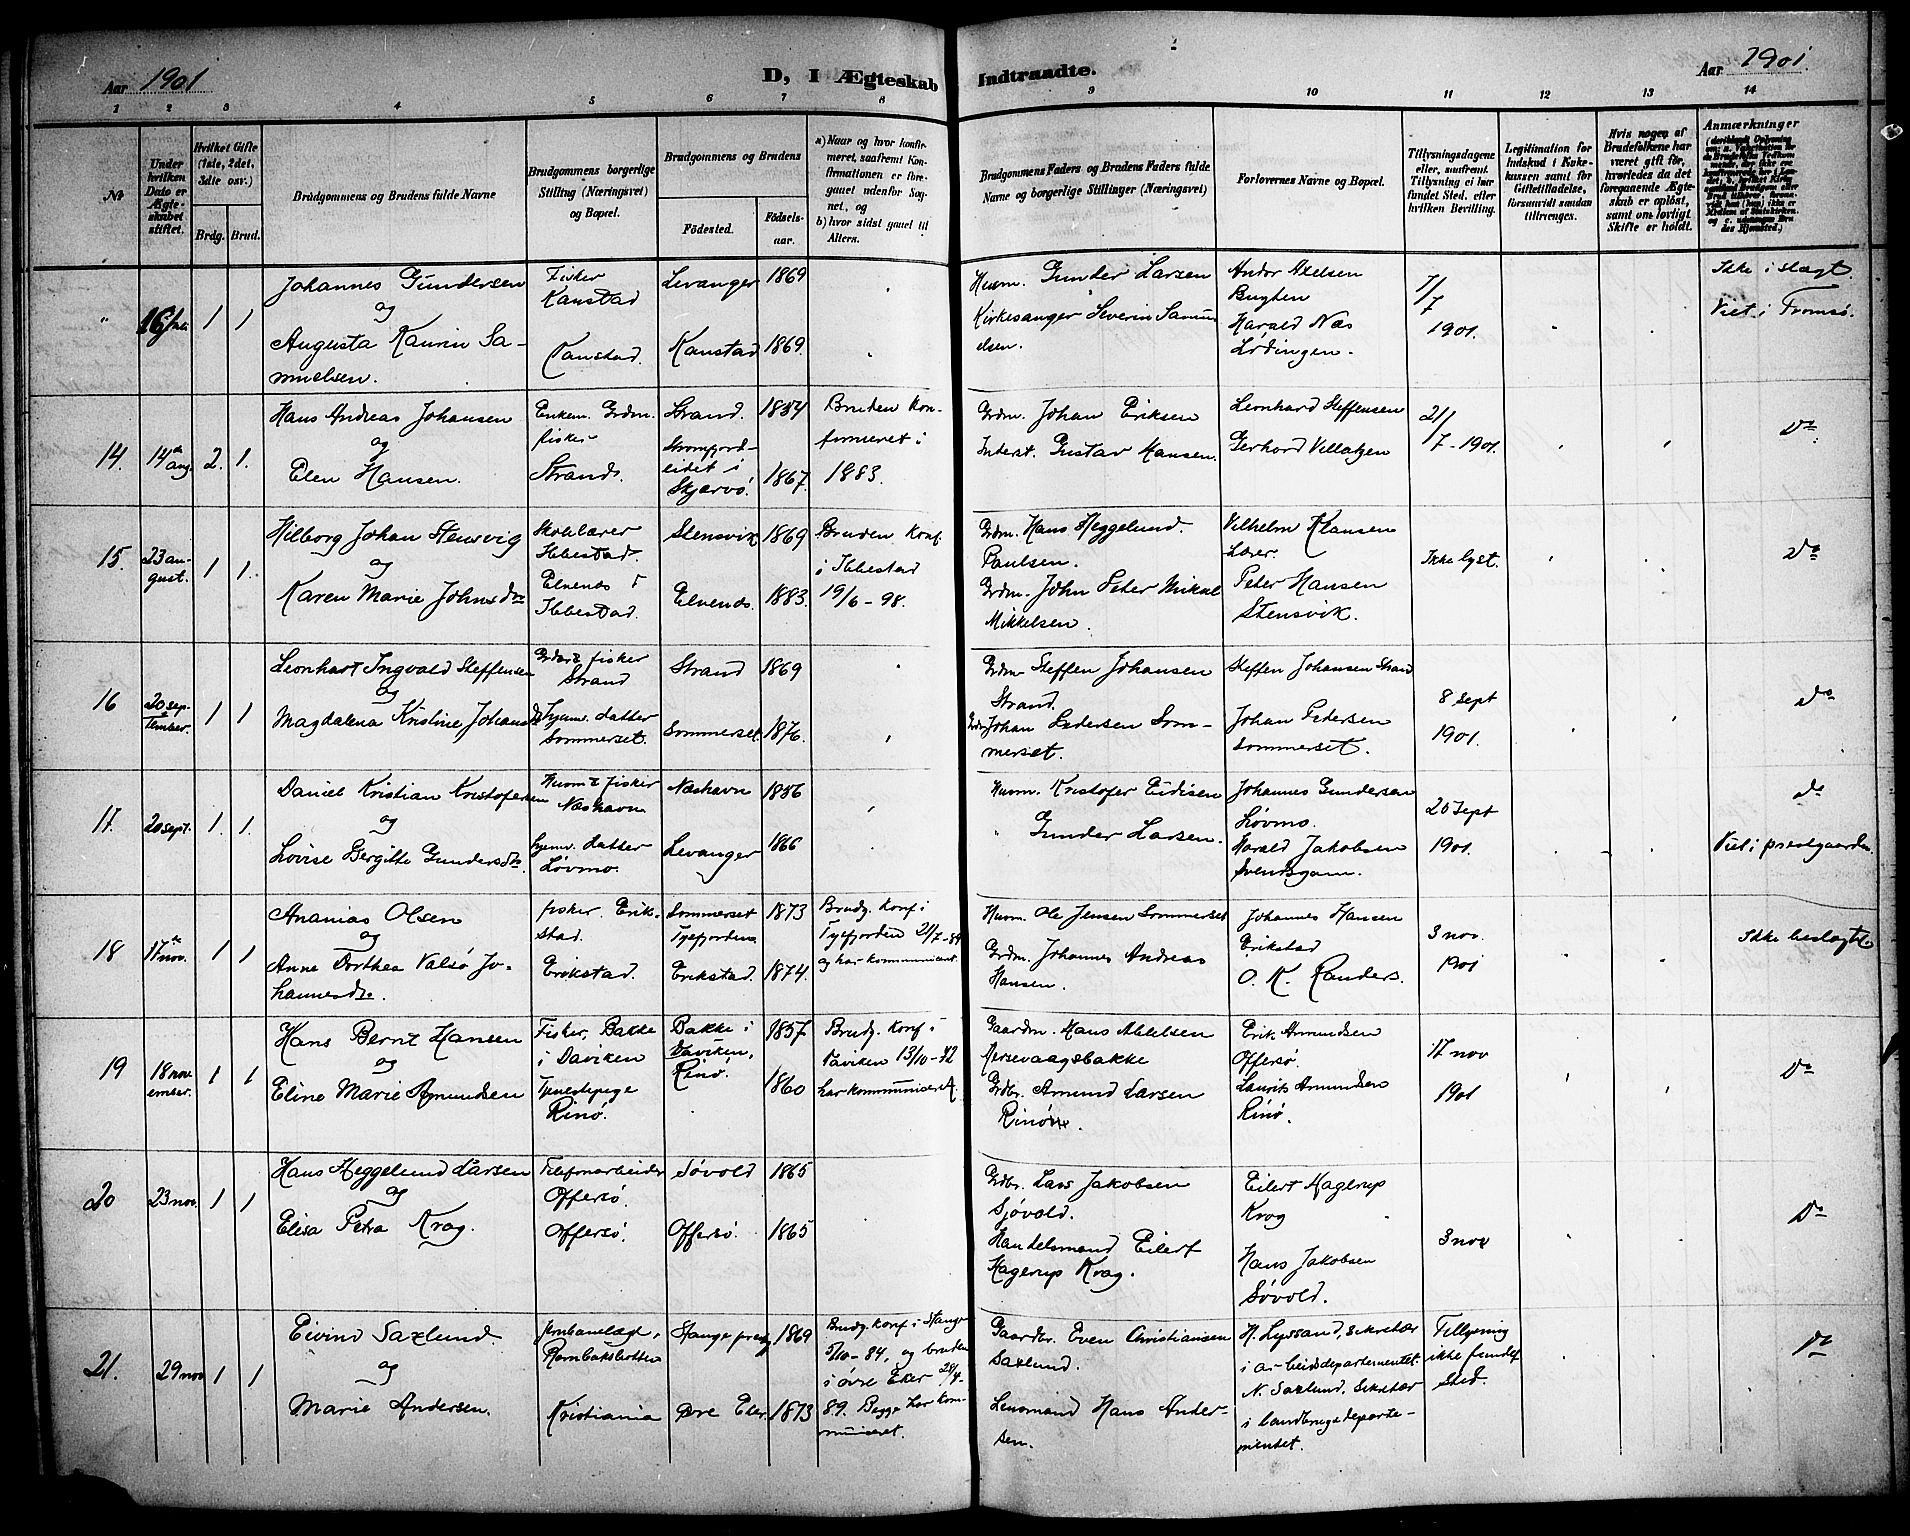 Aar 1901
D, I Ægteskab Indtraadte.
Aar 1901.
1 2 3 4 5 6 7 8 9 10 11 12 13 14
Nr
Under hvilken Dato er Ægteskabet stiftet.
Hvilket Gifte (1ste, 2det, 3die osv.)
Brdg. Brud.
Brudgommens og Brudens fulde Navne
Brudgommens borgerlige Stilling (Næringsvei) og Bopæl.
Brudgommens og Brudens
Fødested.
Fødselsaar.
a) Naar og hvor konfirmeret, saafremt Konfirmationen er foregaaet udenfor Sognet, og
b) hvor sidst gaaet til Alters.
Brudgommens Faders og Brudens Faders fulde Navne og borgerlige Stillinger (Næringsvei)
Forlovernes Navne og Bopæl.
Tillysningsdagene eller, saafremt Tillysning ei har fundet Sted, efter hvilken Bevilling.
Legitimation for Indskud i Enkekassen samt for Giftetilladelse, forsaavidt saadan tiltrænges.
Hvis nogen af Brudefolkene har været gift før, hvorledes da det foregaaende Ægteskab er opløst, samt om lovligt Skifte er holdt.
Anmærkninger
" 1 1
Johannes Gundersen
og
Augusta Kaurin Samuelsen.
Fisker
Kanstad
Kanstad.
Levanger 1869
Kanstad 1869.
Husm. Gunder Larsen
Kirkesanger Severin Samuelsen.
Andor Axelsen
Bugten
Harald Næs
Lødingen.
7/7
1901.
Ikke i slægt.
Viet i Tromsø.
14. 14de aug. 2. 1.
Hans Andreas Johansen
og
Elen Hansen.
Enkem. Grdm.
fisker
Strand.
Strand. 1834
Skjærvø. 1867.
Bruden konfirmeret i
1883.
Grdm. Johan Eriksen
Inderst. Gustav Hansen.
Leonhard Steffensen
21/7 - 1901.
Do
15. 23 august. 1 1.
Hilborg Johan Stensvig
og
Karen Marie Johnsdtr
Skolelærer
Ibbestad.
Elvenes i
Ibbestad.
Stensvik 1869
Elvenes. 1883.
Bruden konf.
i Ibbestad
19/6 - 98.
Grdm. Hans Heggelund
Paulsen.
Grdm. John Peter Mikal
Mikkelsen.
Vilhelm Klausen
Lærer.
Peter Hansen
Stensvik.
Ikke lyst.
Do
16 20 september. 1 1
Leonhart Ingvald Steffensen
og
Magdalena Kristine Johansd
fisker
Strand
hjemv. datter
Sommerset.
Strand 1869
Sommerset. 1876.
Grdm Steffen Johansen
Strand.
Johan Pedersen Sommerset.
Steffen Johansen Strand
Johan Pedersen
Sommerset.
8 sept
1901.
Do
17. 20 sept. 1. 1.
Daniel Kristian Kristofersen
og
Lovise Bergitte Gundersdtr.
Husm & fisker
Næshavn
hjemv. datter
Løvmo.
Næshavn 1856
Levanger 1866
Husm. Kristofer Eidisen
" Gunder Larsen.
Johannes Gundersen
Løvmo.
Harald Jakobsen
20 sept
1901.
Do
Viet i præstgaarden
18 17de nov. 1 1
Ananias Olsen
og
Anne Dorthea Valsø Johannesdtr.
fisker. Erikstad.
Erikstad.
Sommerset
Tysfjorden 1873
Erikstad. 1874.
Brudg. konf i
Tysfjorden
og har kommuniceret.
Husm. Ole Jensen Sommerset
Grdm. Johannes Andreas
Hansen.
Johannes Hansen
Erikstad
O. K. Randers.
3 nov.
1901
Ikke beslægtet
19 18 november. 1 1
Hans Bernt Hansen
og
Eline Marie Amundsen
Fisker, Bakke
i Daviken
Tjenestepige
Rinø.
Bakke i
Daviken, 1857
Rinø. 1860
Brudg. konf i
Daviken 13/10 - 72
har kommuniceret.
Gaardm. Hans Abelsen
Grdbr. Amund Larsen
Rinø.
Erik Amundsen
Offersø.
Laurits Amundsen
Rinø.
17 nov
1901
Do
20 23 nov. 1 1
Hans Heggelund Larsen
og
Elisa Petra Krog.
Telefonarbeider
Offersø.
Offersø.
Søvold 1865
Offersø. 1865
Grdbr. Lars Jakobsen
Sjøvold.
Handelsmand Eilert
Hagerup Krog.
Eilert Hagerup
Krog
Hans Jakobsen
Søvold.
3 nov
Do
21. 29 nov 1 1
Eivind Saxlund.
og
Marie Andersen.
Jernbanelæge,
Rombaksbotten
Kristiania
Stange præstg 1869
Øvre Eker 1873
Brudg. konf. i Stange
5/10 - 84, og bruden
i øvre Eker
89. Begge har kommuniceret.
Gaardbr. Even Christiansen
Saxlund.
Lensmand Hans Andersen.
H. Lyssand, sekretær
i arbeidsdepartementet.
N. Saxlund, sekretær
i landbrugsdepartementet.
Tillysning
ikke fundet
Sted.
Do